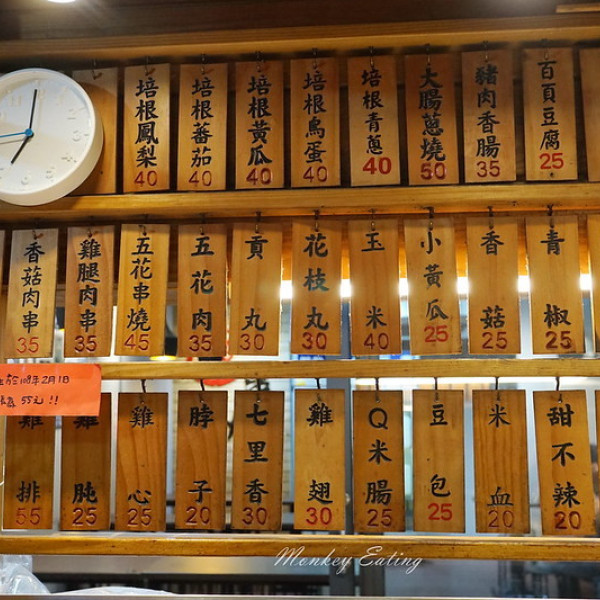 培根鳳梨 40
培根蕃茄 40
培根黃瓜 40
培根鳥蛋 40
培根青蔥 40
大腸蔥燒 50
豬肉香腸 35
百頁豆腐 25
香菇肉串 35
雞腿肉串 35
五花串燒 45
五花肉 35
貢丸 30
花枝丸 30
玉米 40
小黃瓜 25
香菇 25
青椒 25
於108年2月1日
為55元!!
雞排 55
雞肫 25
雞心 25
脖子 20
七里香 30
雞翅 30
Q米腸 25
豆包 25
米血 20
甜不辣 20
Monkey Eating